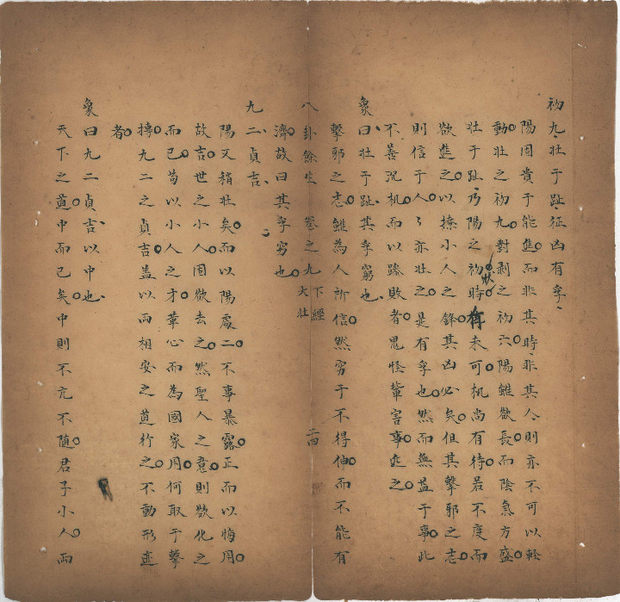 初九壯于趾征凶有孚
陽固貴于能進而非其時非其人則亦不可以輕
動壯之初九對剥之初六陽雖欲長而陰氣方盛
壯于趾乃陽之初時狀未可机尚有待若不度而
欲進之以撩小人之鋒其凶必矣但其擊邪之志
則信于人人亦壯之是有孚也然而無益于事此
不善况机而以踈敗者思怪輩害事迩之
象曰壯于趾其孚窮也
擊邪之志雖為人所信然穷于不得伸而不能有
八卦餘生 卷之九 下經 大壯 二四
濟故曰其孚窮也
九二貞吉
陽又稍壯矣而以陽處二不事暴露正而以悔用
故吉世之小人固欲去之然聖人之意則欲化之
而已苟以小人之才革心而為國家用何取于擊
摶九二之貞吉盖以而相安之道行之不動形迹
者
象曰九二貞吉以中也
天下之道中而已矣中則不亢不随君子小人而